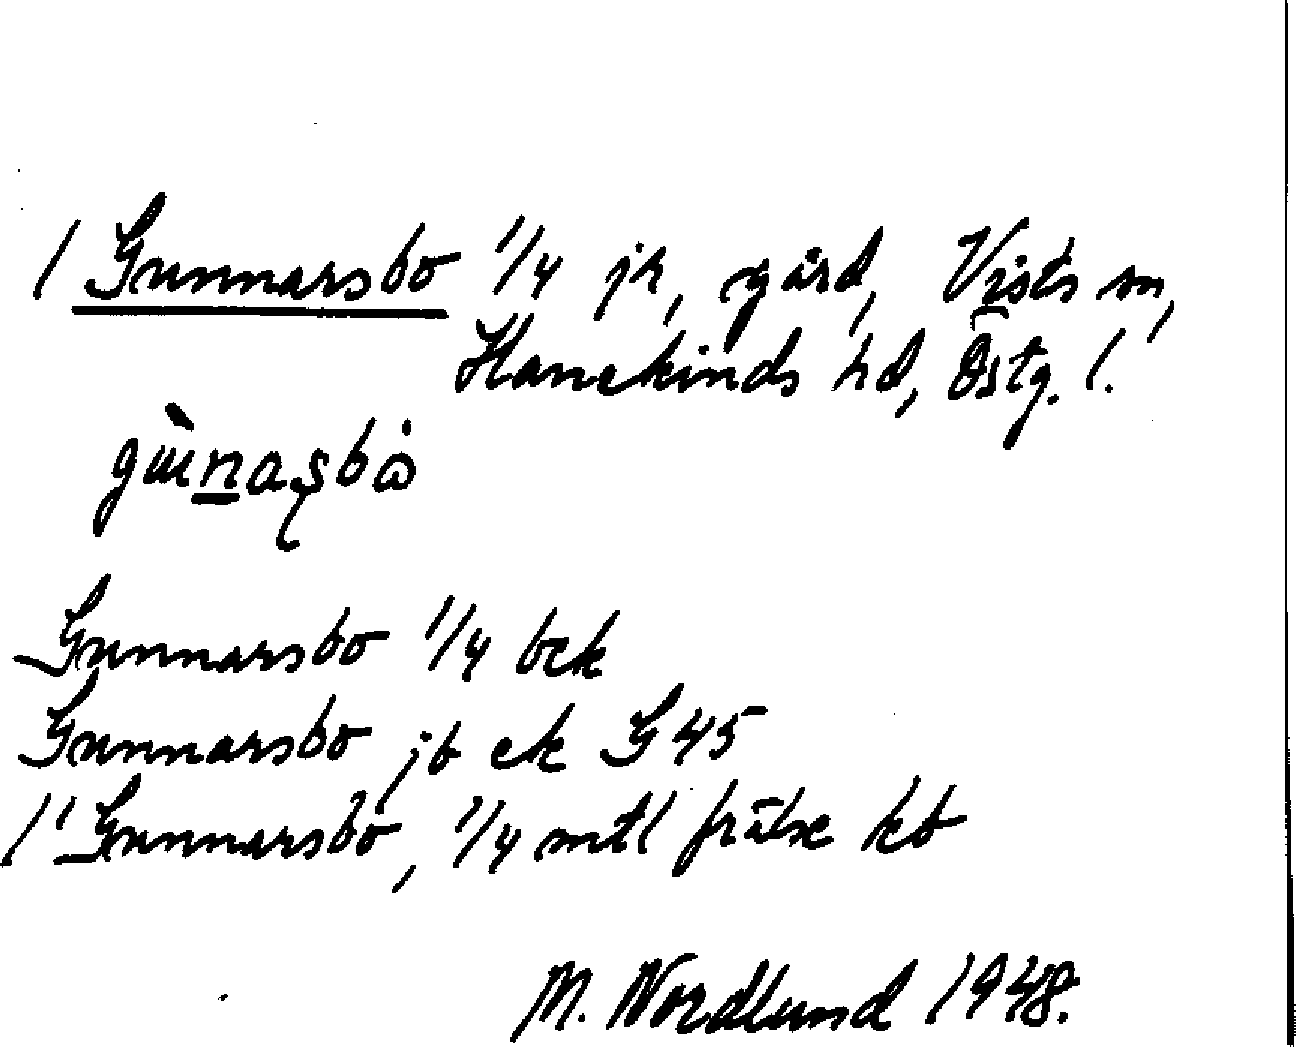 / Gunnarsbo 1/4 jr, gård, Vists sn,
Hanekinds hd, Östg. l.
Gunnarsbo 1/4 bek
Gunnarsbo jb ek G 45
/' Gunnarsbo, 1/4 mtl frälse kb
M. Nordlund 1948.